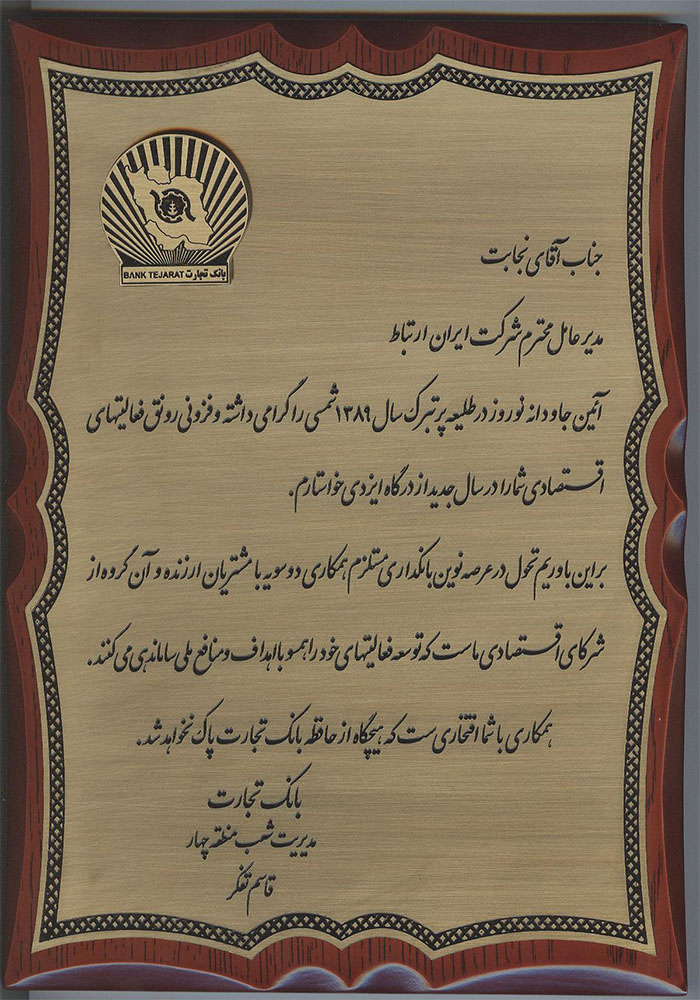 بانک تجارت BANK TEJARAT
جناب آقای نجابت
مدیر عامل محترم شرکت ایران ارتباط
آئین جاودانه نوروز در طلیعه پر تبرک سال ۱۳۸۹ شمسی را گرامی داشته و فزونی رونق فعالیتهای
اقتصادی شما را در سال جدید از درگاه ایزدی خواستارم.
براین باوریم تحول در عرصه نوین بانکداری مستلزم همکاری دو سویه با مشتریان ارزنده و آن گروه از
شرکای اقتصادی ماست که توسعه فعالیتهای خود را همسو با اهداف و منافع ملی ساماندهی می کنند.
همکاری با شما افتخاری ست که هیچگاه از حافظه بانک تجارت پاک نخواهد شد.
بانک تجارت
مدیریت شعب منطقه چهار
قاسم تفکر